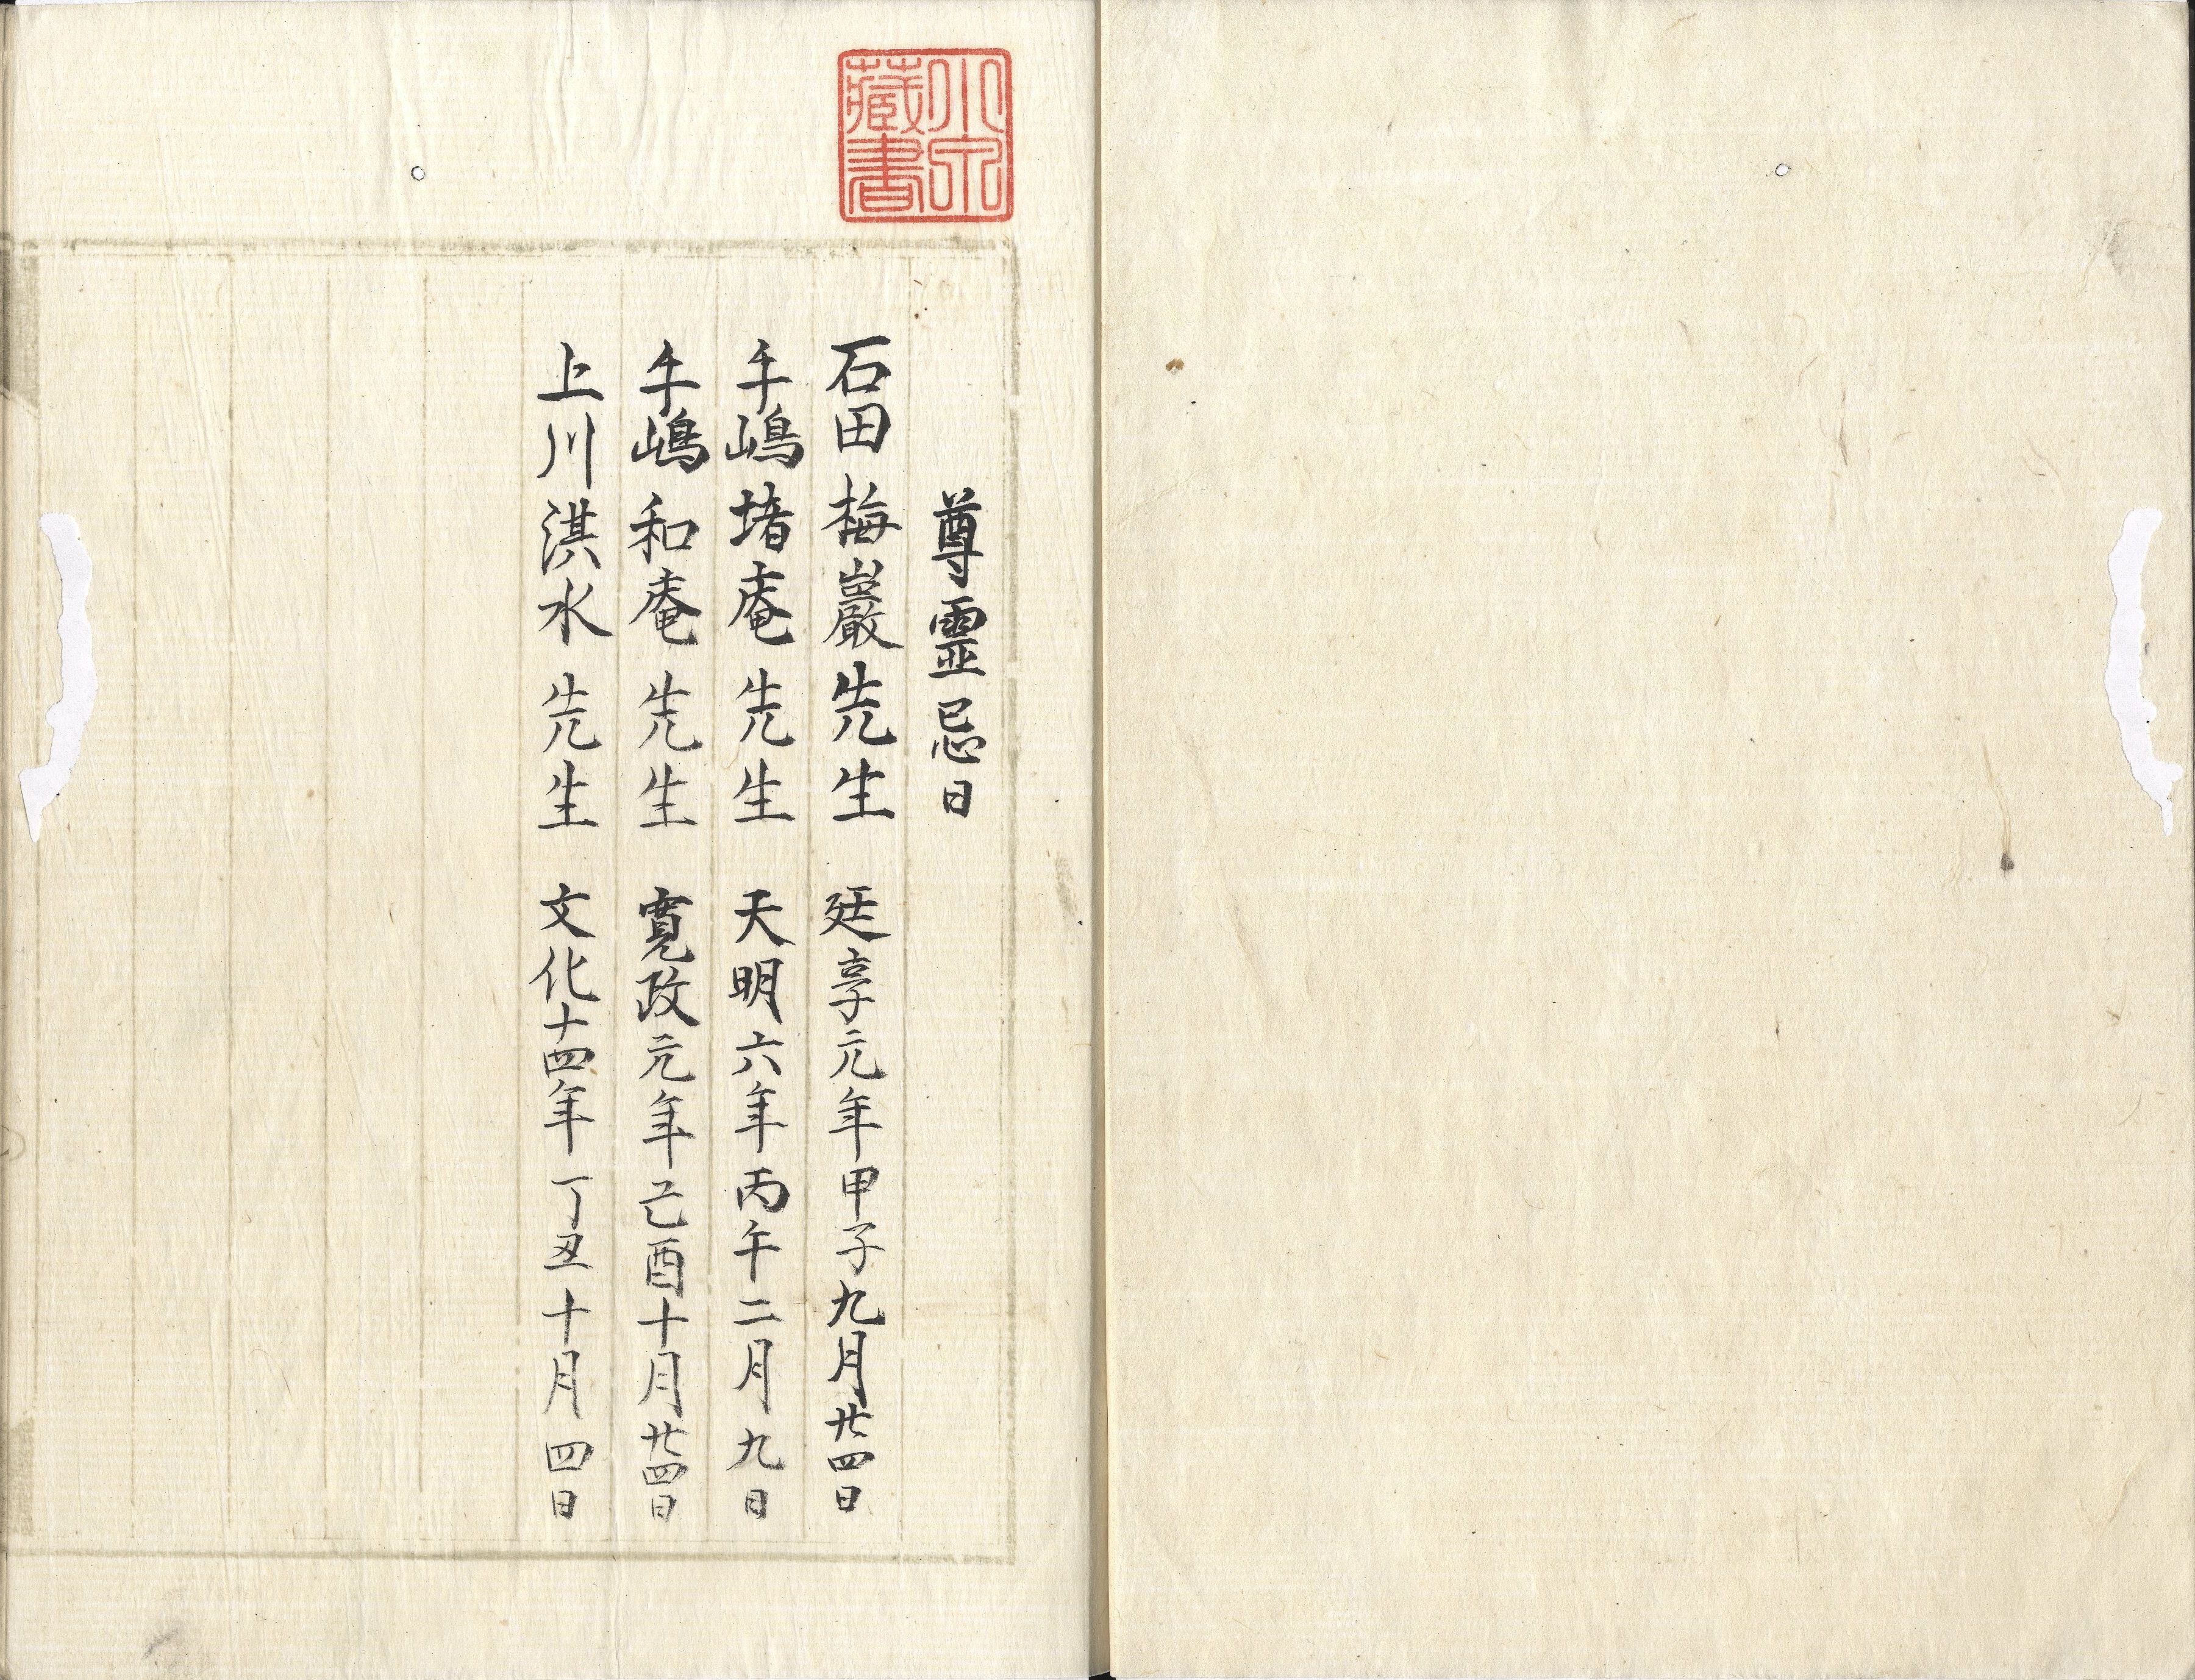 小泉藏書
尊霊忌日
石田梅巖先生 延享元年甲子九月廿四日
手嶋堵庵先生 天明六年丙午二月九日
手嶋和庵先生 寛政元年己酉十月廿四日
上川淇水先生 文化十四年丁丑十月四日